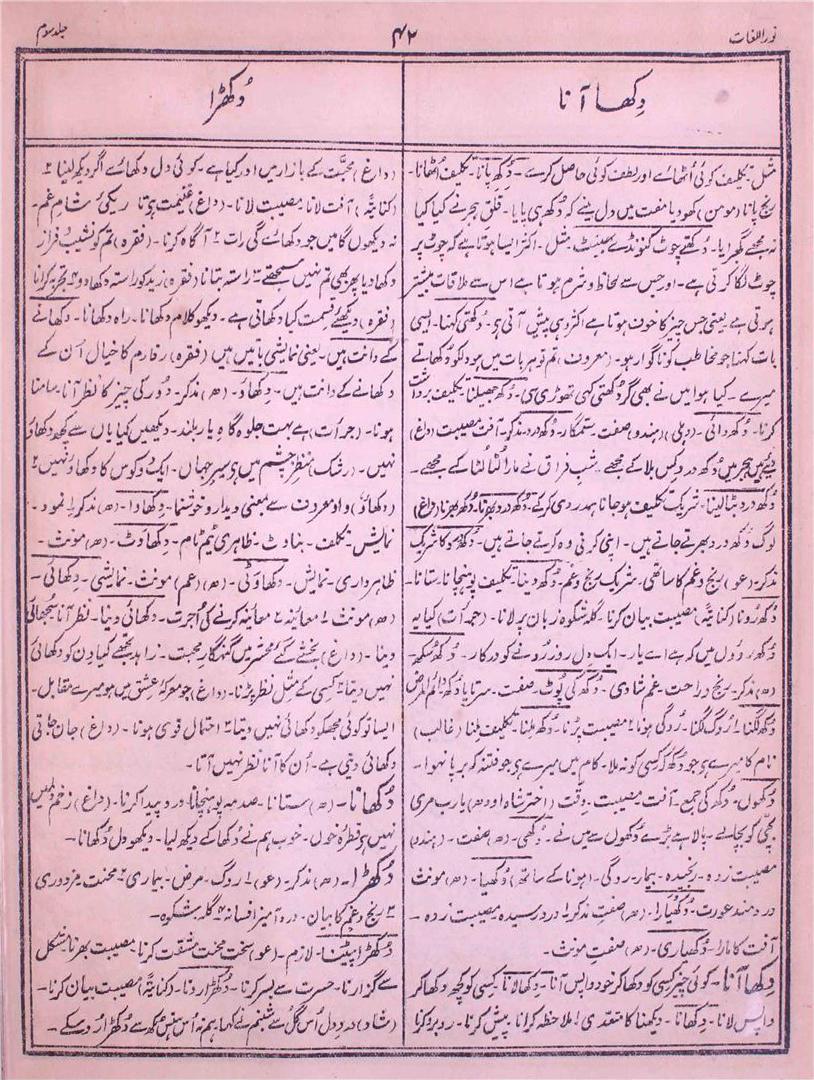 نوراللغات
۴۲
جلد سوم
دِکھا آنا
دُکھڑا
مثل۔ تکلیف کوئی اُٹھائے اور لطف کوئی حاصل کرے۔ دُکھ پانا۔ تکلیف اُٹھانا۔
رنج پانا (مومن) کھو دیا مفت میں دل لینے کہ دُکھ ہی پایا۔ قلقِ ہجر نے کیا کیا
نہ مجھے گھبرایا۔ دُکھتے چوٹ کنونڈے بھینٹ۔ مثل۔ اکثر ایسا ہوتا ہے کہ چوٹ پر
چوٹ لگا کرتی ہے۔ اور جس سے لحاظ و شرم ہوتا ہے اس سے ملاقات بیشتر
ہوتی ہے یعنی جس چیز کا خوف ہوتا ہے اکثر وہی پیش آتی ہے۔ دُکھتی کہنا۔ ایسی
بات کہنا جو مخاطب کو ناگوار ہو۔ (معروف) تم تو ہر بات میں سو دل کو دُکھاتے
میرے۔ کیا ہوا میں نے بھی گر دُکھتی کہی تھوڑی سی۔ دُکھ جھیلنا۔ تکلیف برداشت
کرنا۔ دُکھ دائی۔ (دہلی) (ہندو) صفت۔ ستمگار۔ دُکھ درد۔ مذکر۔ آفت مصیبت (داغ)
دیئے ہیں ہجر میں دُکھ درد کس بلا کے مجھے۔ شبِ فراق نے مارا لٹا لٹا کے مجھے۔
دُکھ درد بٹا لینا۔ شریکِ تکلیف ہو جانا ہمدردی کر کے۔ دُکھ درد بھرنا۔ دُکھ بھرنا (داغ)
لوگ دُکھ درد بھرتے جاتے ہیں۔ اپنی کرنی وہ کرتے جاتے ہیں۔ دُکھ سُکھ کا شریک
مذکر۔ (عو) رنج و غم کا ساتھی۔ شریکِ رنج و غم۔ دُکھ دینا۔ تکلیف پہونچانا۔ ستانا۔
دُکھ رونا (کنایۃً) مصیبت بیان کرنا۔ گلہ شکوہ زبان پر لانا۔ (جرأت) کیا یہ
دُکھ روؤں میں کہ ہے اے یار۔ ایک دِل روز رونے کو درکار۔ دُکھ سُکھ۔
(ھ) مذکر۔ رنج و راحت۔ غم شادی۔ دُکھ کی پوٹ۔ صفت۔ سرتاپا دُکھ۔ دائم المرض
دُکھ لگنا۔ ۱ روگ لگنا۔ روگی ہونا ۲ مصیبت پڑنا۔ دُکھ ملنا۔ تکلیف ملنا (غالب)
نام کا میرے ہے جو دُکھ کہ کسی کو نہ ملا۔ کام میں میرے ہے جو فتنہ کہ برپا نہوا۔
دُکھوں۔ دُکھ کی جمع۔ آفت مصیبت۔ دِقت (اختر شاہِ اودھ) یارب مری
بچّی کو بچا لے۔ پالا ہے بڑے دُکھوں سے میں نے۔ دُکھی۔ (ھ) صفت۔ (ہندو)
مصیبت زدہ۔ رنجیدہ۔ بیمار۔ روگی۔ (ہونا کے ساتھ) دُکھیا۔ (ھ) مونث
دردمند عورت۔ دُکھیارا۔ (ھ) صفت مذکر ۱ درد رسیدہ مصیبت زدہ۔
آفت کا مارا۔ دُکھیاری۔ (ھ) صفت مونث۔
دِکھا آنا۔ کوئی چیز کسی کو دکھا کر خود واپس آنا۔ دکھا لانا۔ کسی کو کچھ دکھا کر
واپس لانا۔ دِکھانا۔ دیکھنا کا متعدی ۱ ملاحظہ کرانا۔ پیش کرنا۔ روبرو کرنا
(داغ) محبّت کے بازار میں اور کیا ہے۔ کوئی دل دِکھائے اگر دیکھ لینا ۲
(کنایۃً) آفت لانا۔ مصیبت لانا۔ (داغ) غنیمت ہوتا ریکیٔ شامِ غم۔
نہ دیکھوں گا میں جو دکھائے گی رات ۲ آگاہ کرنا۔ (فقرہ) تم کو نشیب فراز
دکھا دیا پھر بھی تم نہیں سمجھتے ۳ راستہ بتانا (فقرہ) زید کو راستہ دکھا دو ۴ تجربہ کرانا
(فقرہ) دیکھئے قسمت کیا دکھاتی ہے۔ دیکھو کلام دکھانا۔ راہ دکھانا۔ دکھانے
کے دانت ہیں۔ یعنی نمایشی باتیں ہیں (فقرہ) رفارم کا خیال اُن کے
دکھانے کے دانت ہیں۔ دِکھاؤ۔ (ھ) مذکر۔ دور کی چیز کا نظر آنا۔ سامنا
ہونا۔ (جرأت) ہے بہت جلوہ گاہِ یار بلند۔ دیکھیں کیا یاں سے کچھ دکھاؤ
نہیں۔ (رشک) منظرِ چشم میں ہے سیرِ جہاں۔ ایک دو کوس کا دکھاؤ نہیں ۲
(دکھاؤ) واو معروف سے بمعنی دیدار و خوشنما۔ دِکھاوا۔ (ھ) مذکر ۱ نمود۔
نمایش۔ تکلف۔ بناوٹ۔ ظاہری ٹیم ٹام۔ دکھاوٹ۔ (ھ) مونث۔
ظاہر داری۔ نمایش۔ دِکھاوٹی۔ (ھ) (عم) مونث۔ نمایشی۔ دِکھائی۔
(ھ) مونث ۱ معائنہ ۲ معائنہ کرنے کی اُجرت۔ دکھائی دینا۔ نظر آنا۔ سُجھائی
دینا۔ (داغ) بخشے گئے محشر میں گنہگارِ محبت۔ زاہد تجھے کیا دِن کو دکھائی
نہیں دیتا ۲ کسی کے مِثل نظر پڑنا۔ (داغ) جو معرکۂ عشق میں ہو میرے مقابل۔
ایسا تو کوئی مجھکو دکھائی نہیں دیتا ۳ احتمال قوی ہونا۔ (داغ) جان جاتی
دکھائی دیتی ہے۔ اُن کا آنا نظر نہیں آتا۔
دُکھانا۔ (ھ) ستانا۔ صدمہ پہونچانا۔ درد پیدا کرنا۔ (داغ) زخمِ دلمیں
نہیں ہے قطرۂ خوں۔ خوب ہم نے دُکھا کے دیکھ لیا۔ دیکھو دِل دُکھانا۔
دُکھڑا۔ (ھ) مذکر۔ (عو) ۱ روگ۔ مرض۔ بیماری ۲ محنت مزدوری
۳ رنج و غم کا بیان۔ درد آمیز افسانہ ۴ گلہ شکوہ۔
دُکھڑا پیٹنا۔ لازم۔ (عو) سخت محنت مشقت کرنا۔ مصیبت بھرنا۔ مشکل
سے گزارنا۔ حسرت سے بسر کرنا۔ دُکھڑا رونا۔ (کنایۃً) مصیبت بیان کرنا۔
(شاد) دردِ دل اُس گل سے شبنم نے کہا۔ ہم نہ اُس ہنس مکھ سے دُکھڑا رو سکے۔